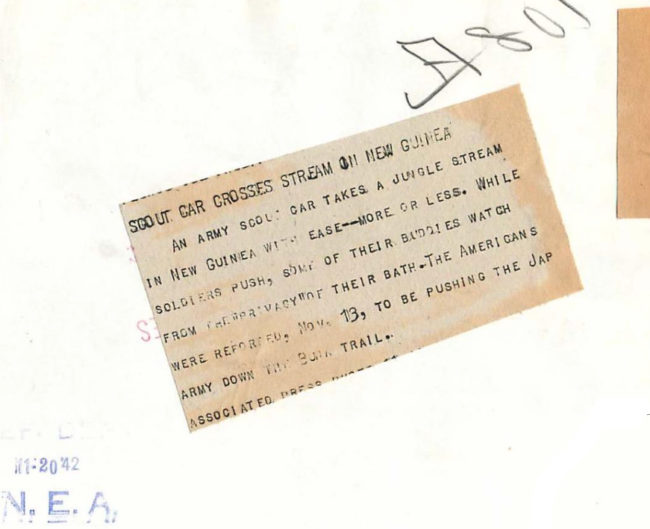 A 801
SCOUT CAR CROSSES STREAM IN NEW GUINEA
AN ARMY SCOUT CAR TAKES A JUNGLE STREAM
IN NEW GUINEA WITH EASE--MORE OR LESS. WHILE
SOLDIERS PUSH, SOME OF THEIR BUDDIES WATCH
FROM THE PRIVACY OF THEIR BATH. THE AMERICANS
WERE REPORTED, NOV. 13, TO BE PUSHING THE JAP
ARMY DOWN THE BUNA TRAIL.
ASSOCIATED PRESS
11-20'42
N. E. A.